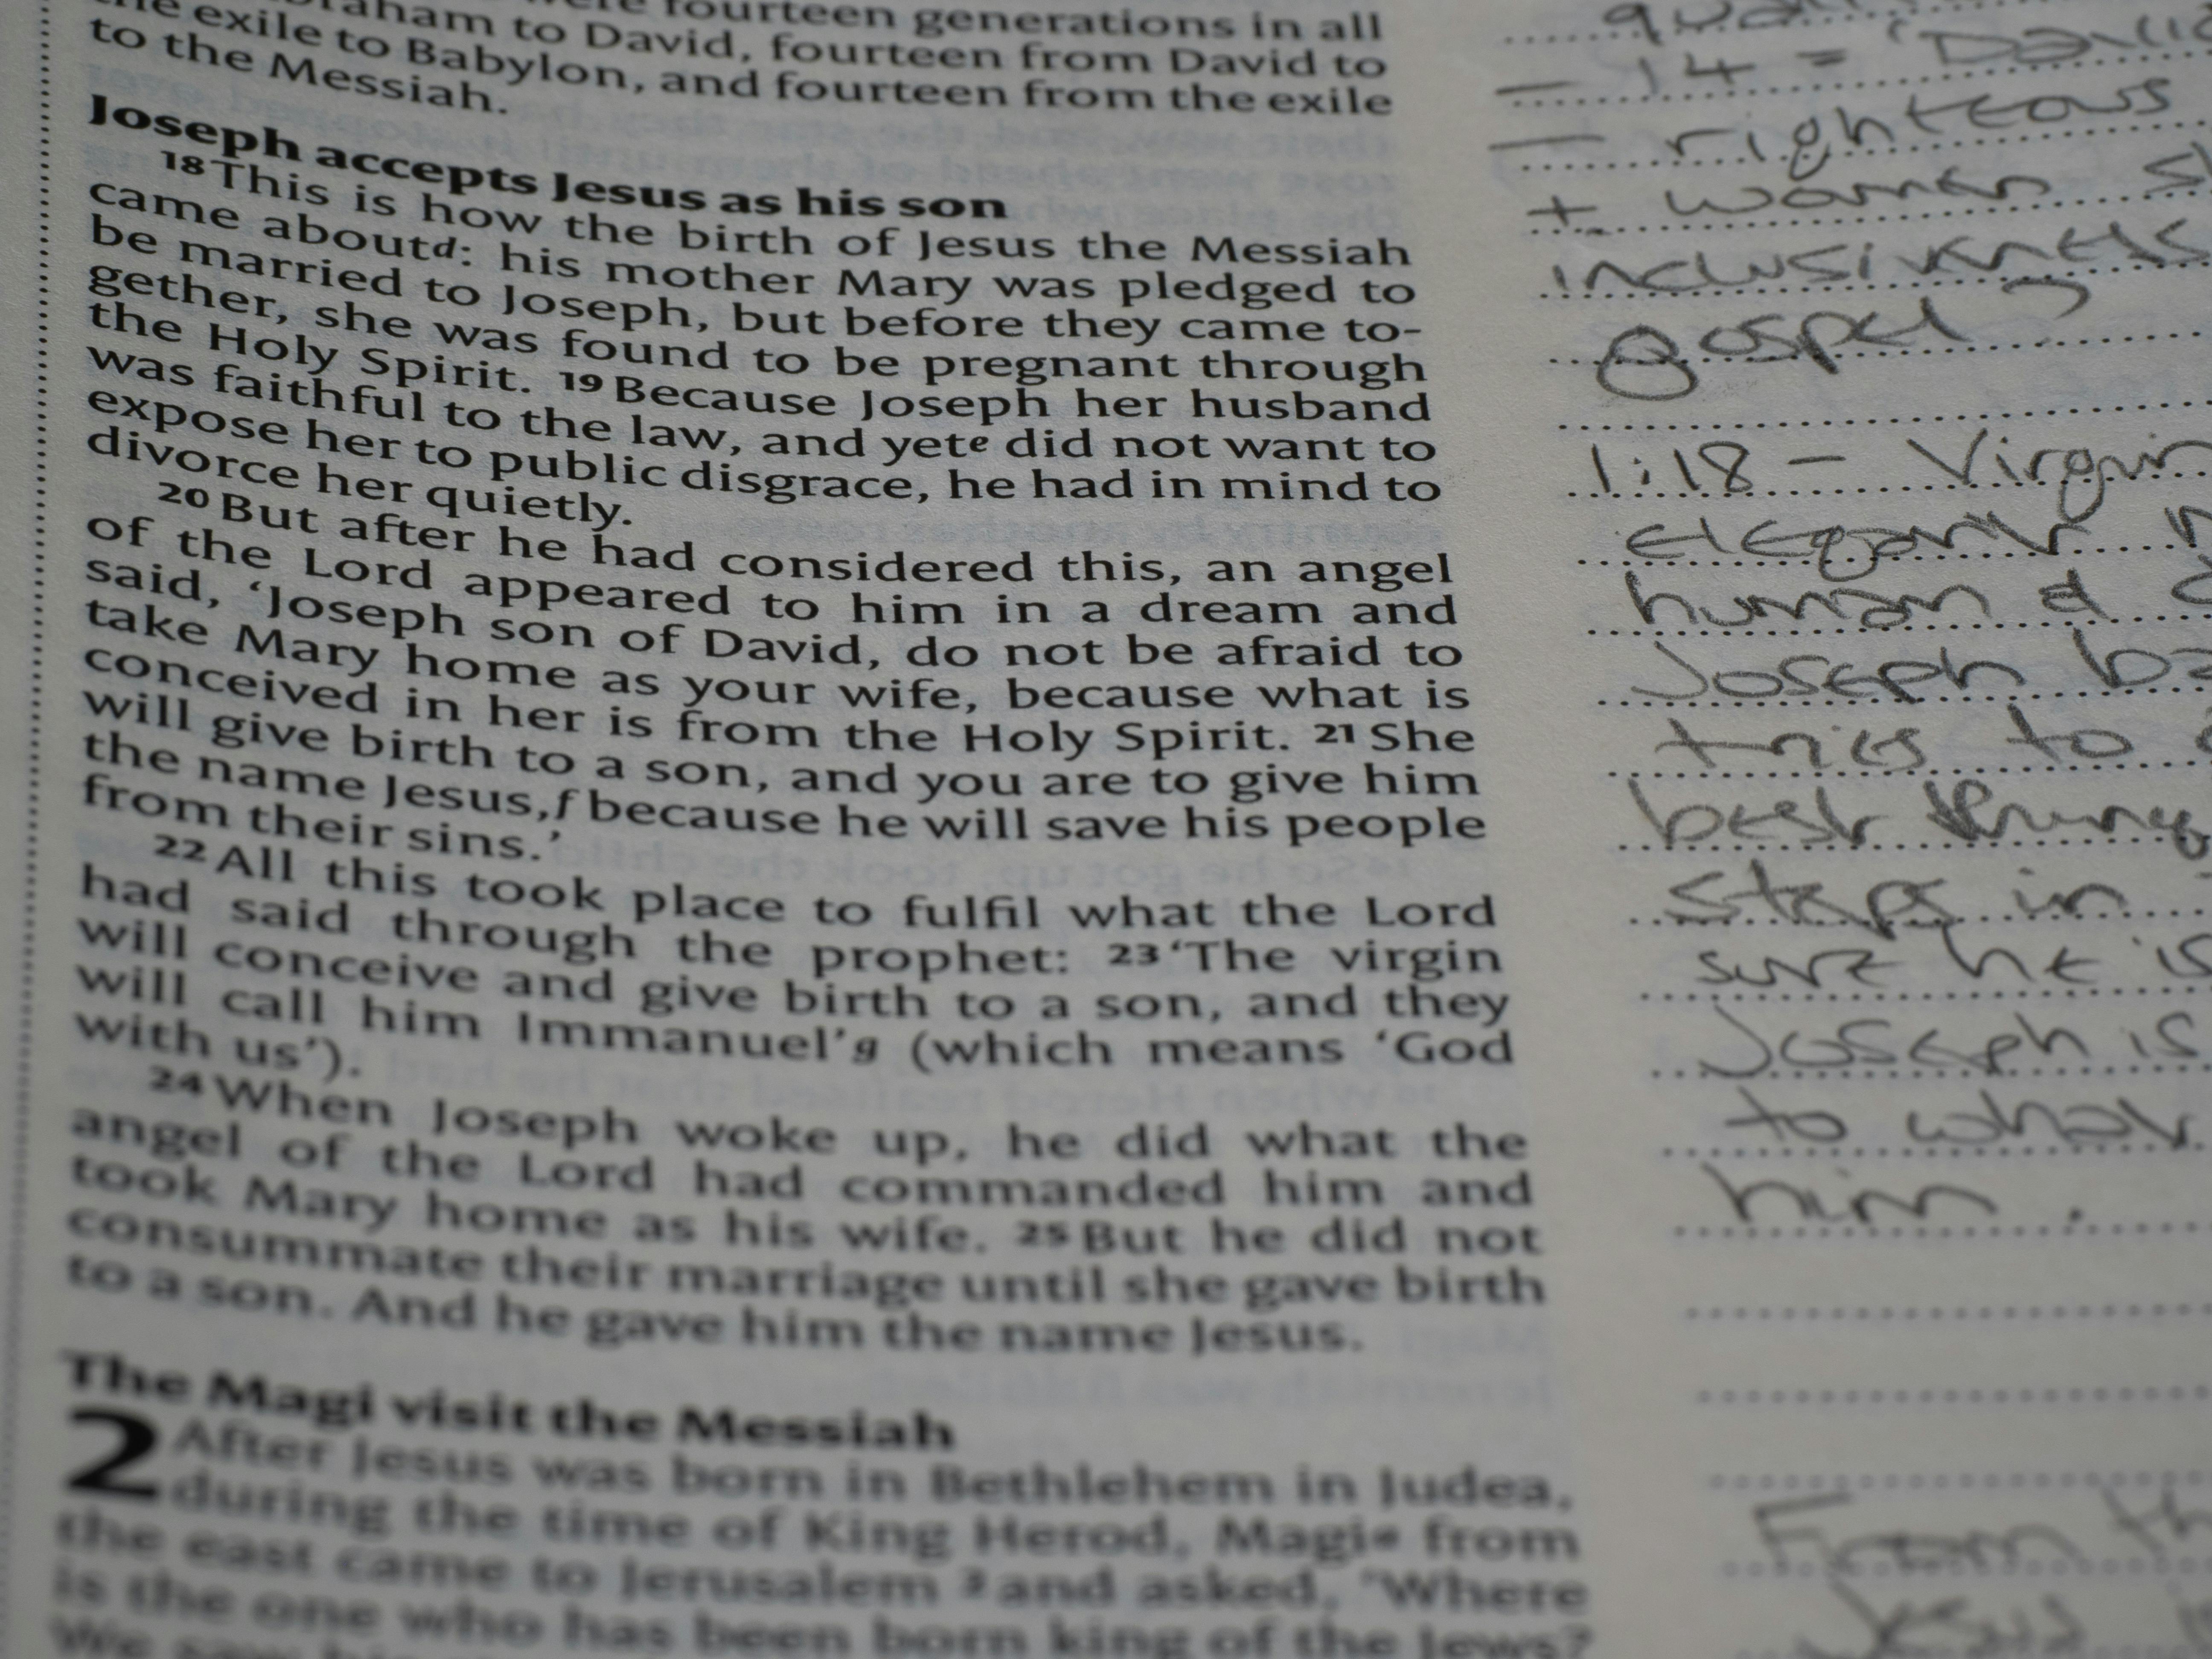 were fourteen generations in all
Abraham to David, fourteen from David to
the exile to Babylon, and fourteen from the exile
to the Messiah.
Joseph accepts Jesus as his son
18 This is how the birth of Jesus the Messiah
came aboutd: his mother Mary was pledged to
be married to Joseph, but before they came to-
gether, she was found to be pregnant through
the Holy Spirit. 19 Because Joseph her husband
was faithful to the law, and yete did not want to
expose her to public disgrace, he had in mind to
divorce her quietly.
20 But after he had considered this, an angel
of the Lord appeared to him in a dream and
said, ‘Joseph son of David, do not be afraid to
take Mary home as your wife, because what is
conceived in her is from the Holy Spirit. 21 She
will give birth to a son, and you are to give him
the name Jesus,f because he will save his people
from their sins.’
22 All this took place to fulfil what the Lord
had said through the prophet: 23 ‘The virgin
will conceive and give birth to a son, and they
will call him Immanuel’g (which means ‘God
with us’).
24 When Joseph woke up, he did what the
angel of the Lord had commanded him and
took Mary home as his wife. 25 But he did not
consummate their marriage until she gave birth
to a son. And he gave him the name Jesus.
The Magi visit the Messiah
2 After Jesus was born in Bethlehem in Judea,
during the time of King Herod, Magia from
the east came to Jerusalem 2 and asked, ‘Where
is the one who has been born king of the Jews?
We saw
- 14 = 'David
- righteous
+ women
inclusiveness
gospel?
1:18 - Virgin
elegant
human &
Joseph
tries to
best thing
steps in
sure he is
Joseph is
to what
him.
From th
Jesus